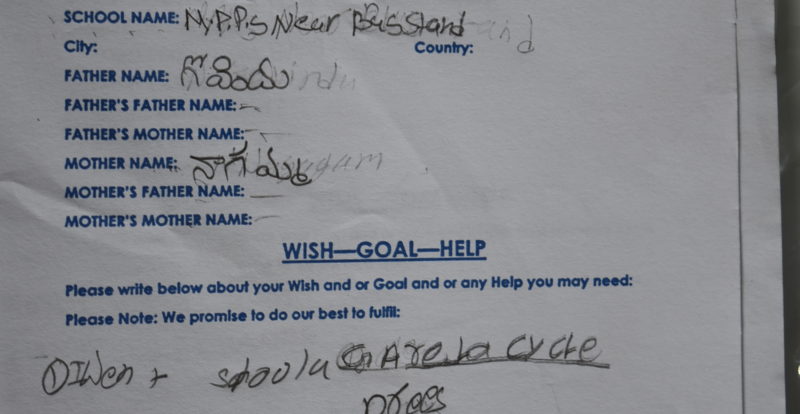 SCHOOL NAME: M.P.P.S Near Busstand
City: Country:
FATHER NAME: గోవిందు
FATHER'S FATHER NAME: -
FATHER'S MOTHER NAME: -
MOTHER NAME: నాగమ్మ
MOTHER'S FATHER NAME: —
MOTHER'S MOTHER NAME: —
WISH—GOAL—HELP
Please write below about your Wish and or Goal and or any Help you may need:
Please Note: We promise to do our best to fulfil:
① cycle